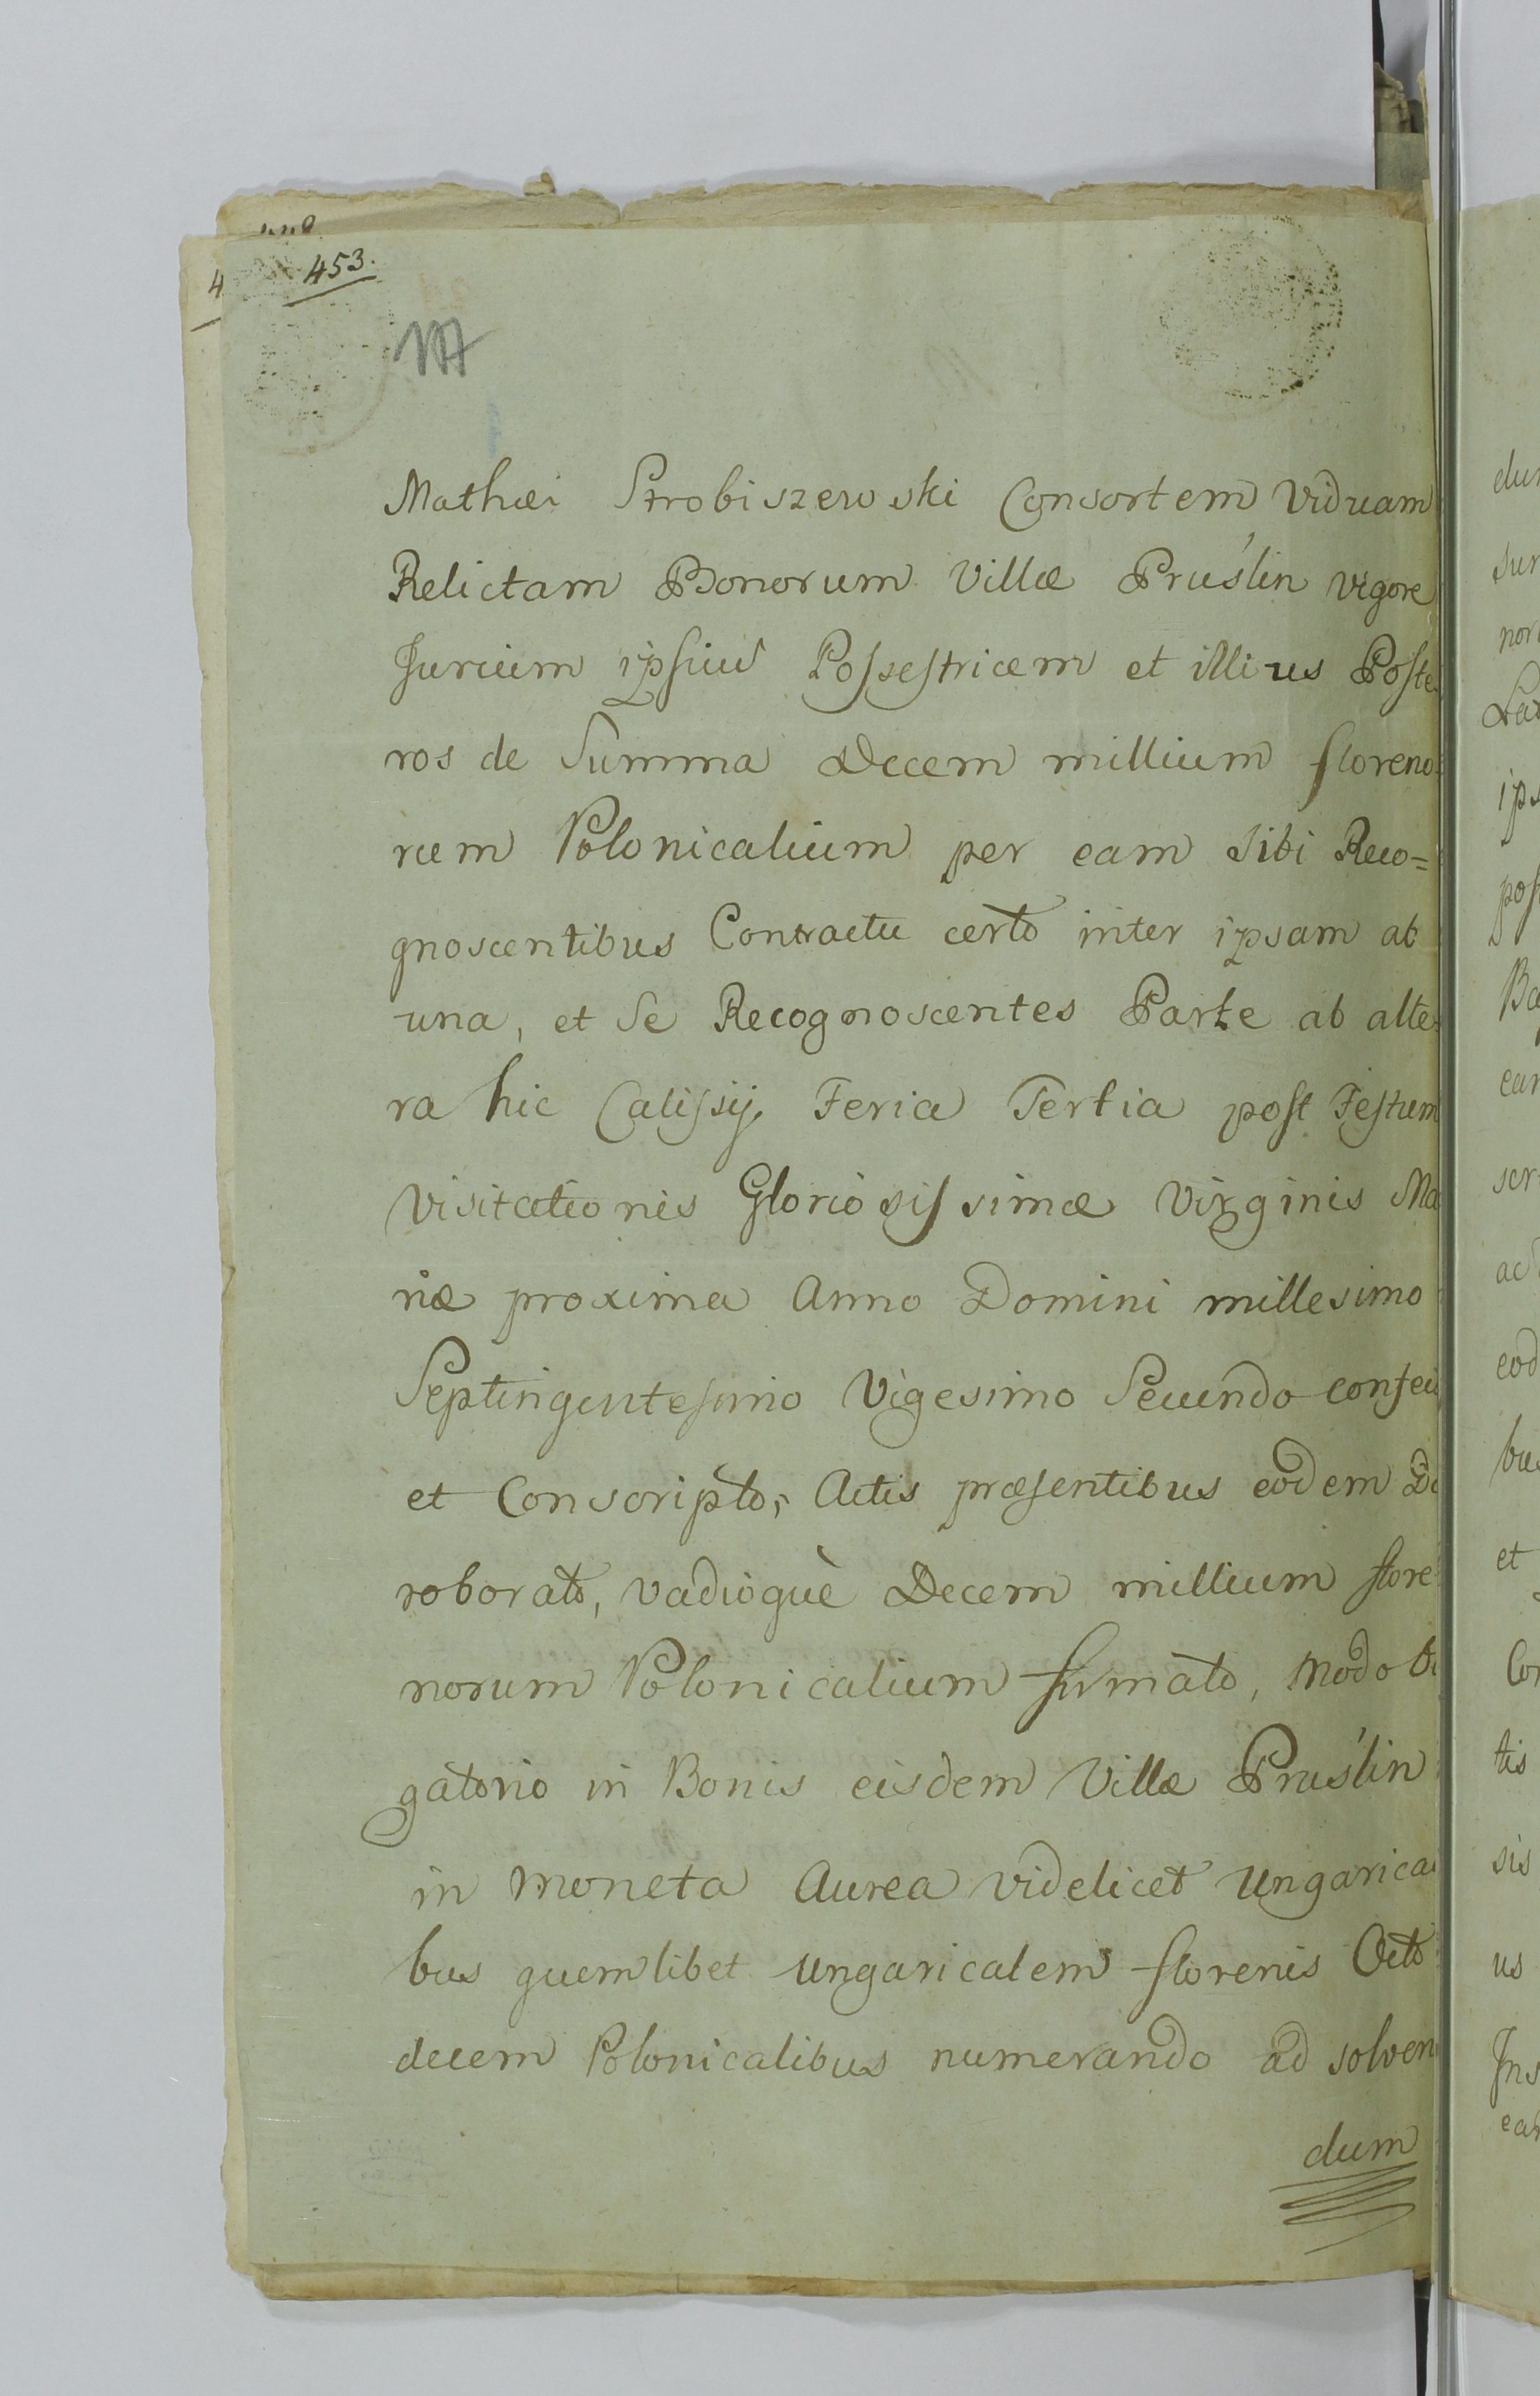 453.
Mathæi Strobiszewski Consortem Viduam
Relictam Bonorum Villæ Pruślin vigore
Jurium ipsius Possestricem et illius Poste
ros de Summa Decem millium floreno
rum Polonicalium per eam sibi Reco=
gnoscentibus Contractu certo inter ipsam ab
una, et se Recognoscentes Parte ab alte
ra hic Calissij Feria Tertia post Festum
Visitationis Gloriosissimæ Virginis Ma
riæ proxima Anno Domini millesimo
Septingentesimo Vigesimo Secundo confec
et Conscripto, Actis præsentibus eodem Di
roborato, vadioquè Decem millium flore
norum Polonicalium firmato, modo
gatorio in Bonis eisdem Villæ Pruślin
in moneta Aurea videlicet Ungarica
bus quemlibet Ungaricalem florenis Octo
decem Polonicalibus numerando ad solven
dum